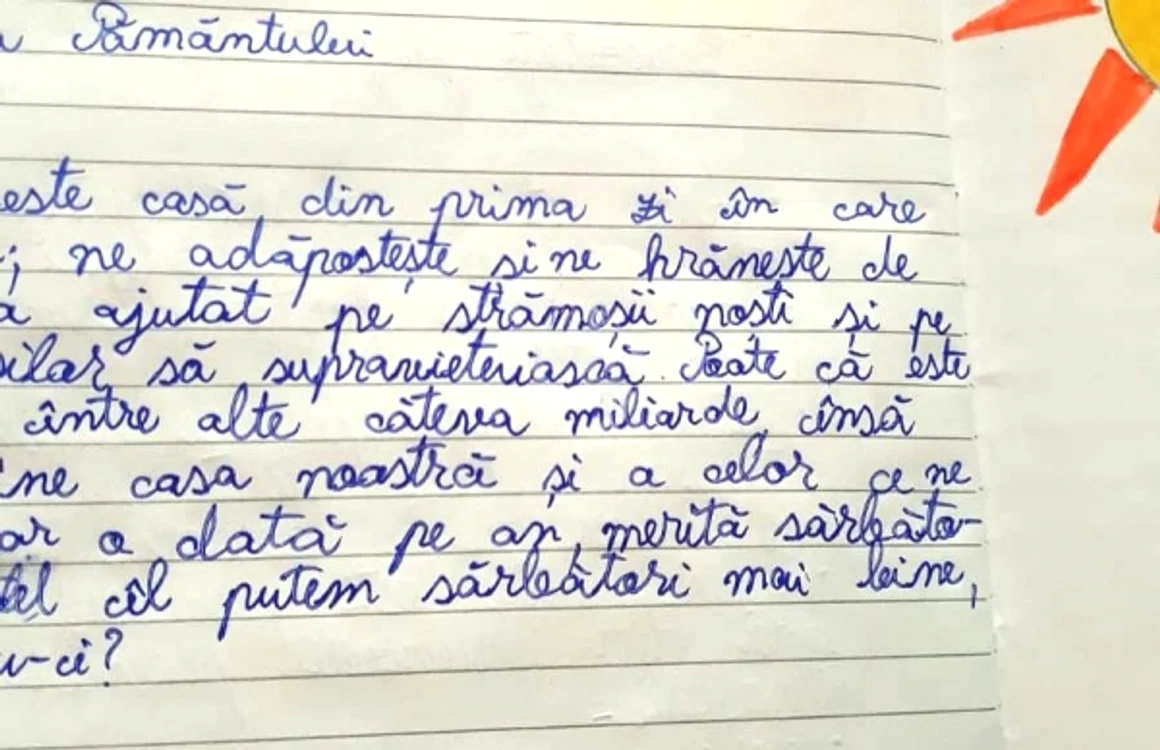 Pământului
este casă, din prima zi în care
ne adăpostește și ne hrănește de
a ajutat pe strămoșii noști și pe
să supraviețuiască. Poate că este
între alte câteva miliarde, însă
casa noastră și a celor ce ne
o dată pe an, merită sărbăto-
îl putem sărbători mai bine,